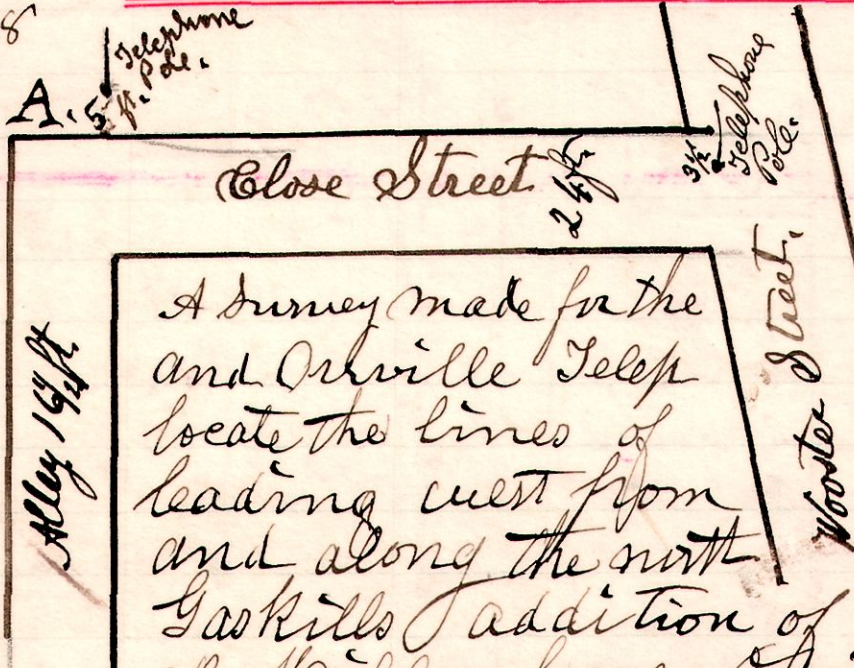 8
Telephone
Pole.
A. 5 ft.
Telephone
Pole.
3½
Close Street
24 ft.
Alley 16 ft
Wooster Street.
A survey made for the
and Orrville Telep
locate the lines of
leading west from
and along the north
Gaskills addition of